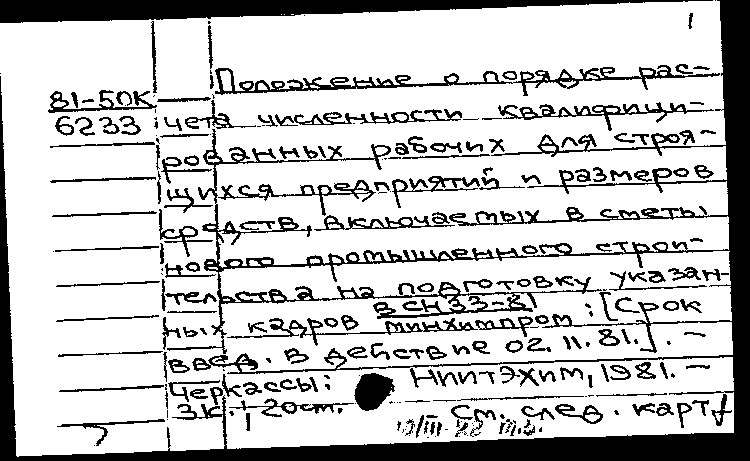 1
Положение о порядке рас-
81-50К
6233 чета численности квалифици-
рованных рабочих для строя-
щихся предприятий и размеров
средств, включаемых в сметы
нового промышленного строи-
тельства на подготовку указан-
ных кадров в СН 33-81
Минхимпром : [Срок
введ. в действие 02.11.81.]. —
Черкассы: НИИТЭХИМ, 1981. —
3 к. ; 20 см.
См. след. карт